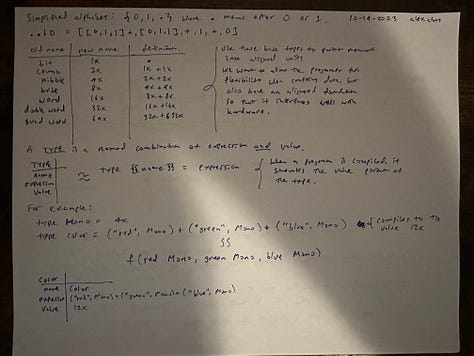 Simplified alphabet: {0, 1, .} where . means either 0 or 1. 10-14-2023
..10 = [[0,1,1]+,[0,1,1],+,1,+,0]
old name new name definition
bit 1x .
crumb 2x 1x + 1x
nibble 4x 2x + 2x
byte 8x 4x + 4x
word 16x 8x + 8x
double word 32x 16x + 16x
quad word 64x 32x + 32x
Use these base types to partition memory
into aligned units
We want to allow the programmer
flexibility when combining data, but
also have an aligned foundation
so that it interfaces well with
hardware.
A TYPE is a named combination of expression and value.
TYPE
name
expression
value
≈ type [[name]] = expression
When a program is compiled, it
the value portion of
the type.
For example:
type Mono = 4x
type Color = ("red", Mono) + ("green", Mono) + ("blue", Mono) compiles to the
value 12x
f(red Mono, green Mono, blue Mono)
Color
name Color
expression ("red", Mono) + ("green", Mono) + ("blue", Mono)
value 12x